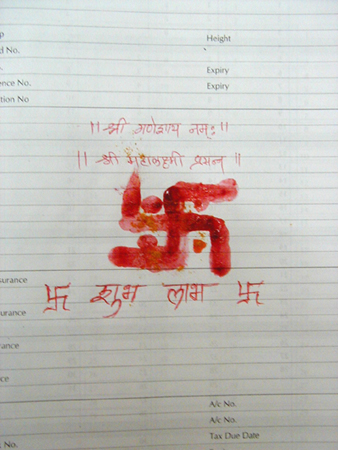 Height
d No.
Expiry
ence No. Expiry
tion No
॥ श्री गणेशाय नमः ॥
॥ श्री महालक्ष्मी प्रसन्न ॥
surance
卐 शुभ लाभ 卐
surance
ance
ce
A/c No.
A/c No.
Tax Due Date
No.